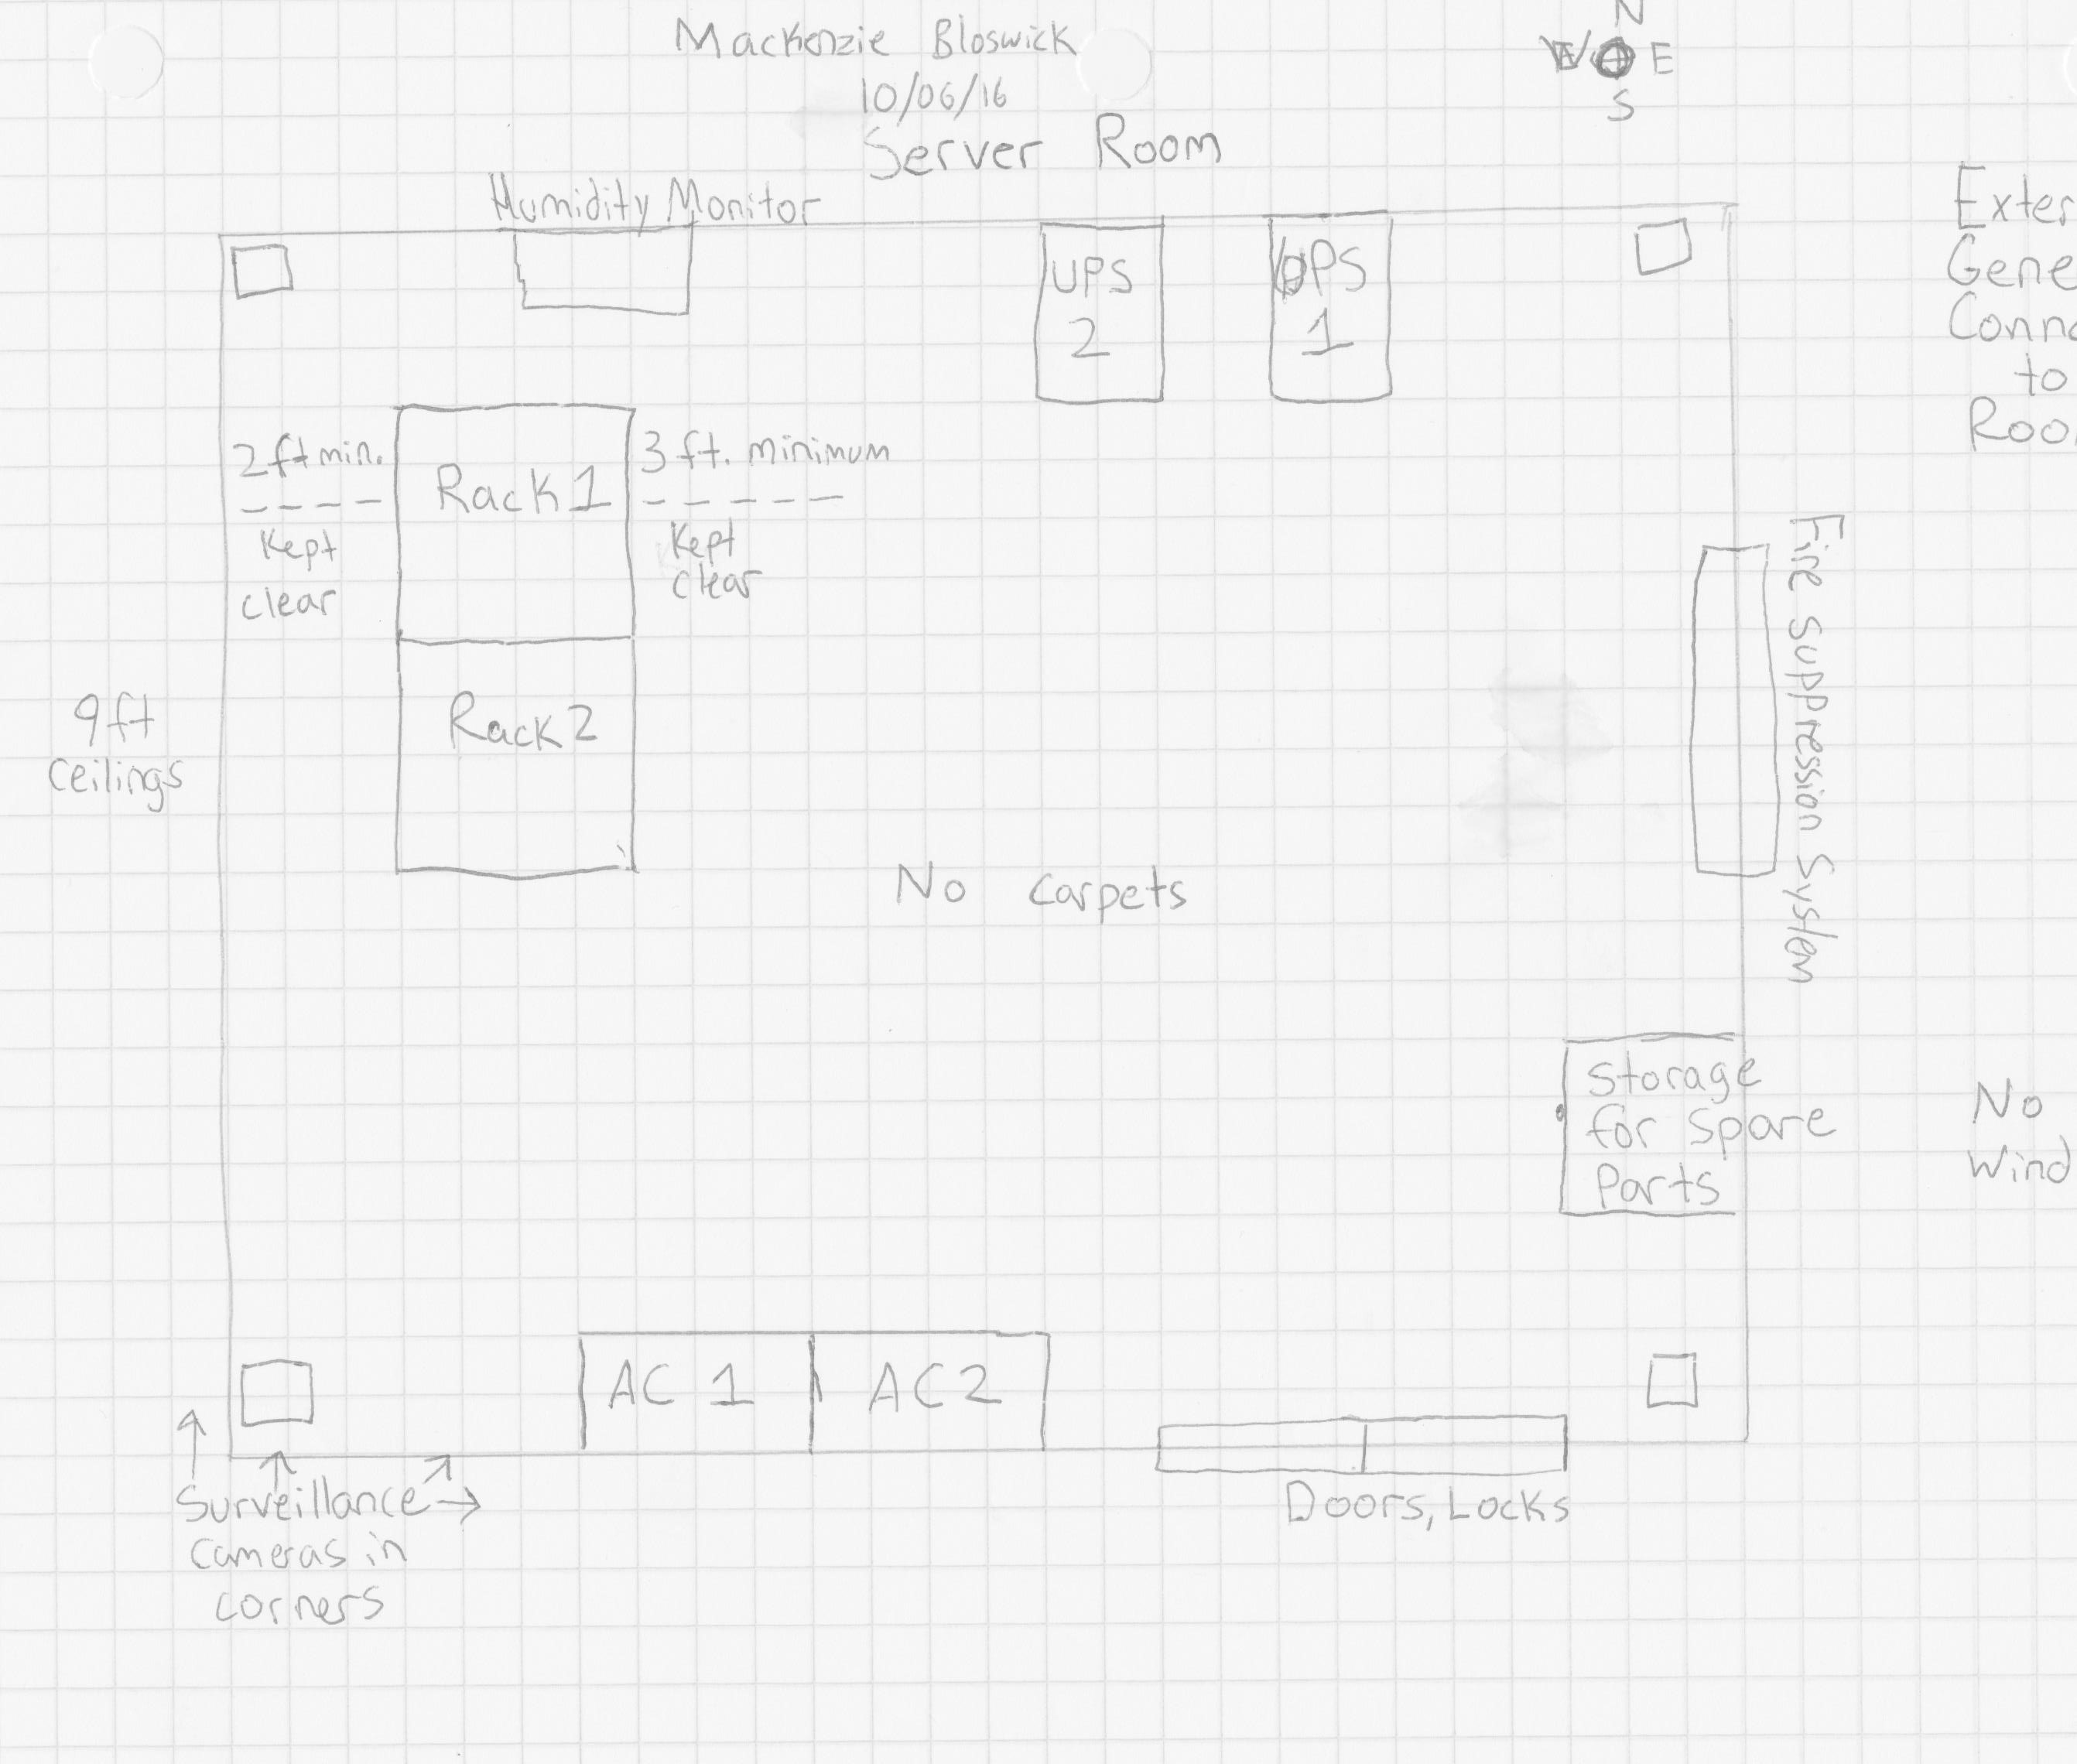 Mackenzie Bloswick
10/06/16
Server Room
N
W E
S
Humidity Monitor
UPS
2
UPS
1
Exter
Gene
Conn
to
Roo
2 ft min.
Kept
clear
Rack 1
3 ft. minimum
Kept
clear
Rack 2
9ft
Ceilings
Fire Suppression System
No Carpets
Storage
for Spare
Parts
No
Wind
AC 1
AC 2
Doors, Locks
Surveillance
Cameras in
corners